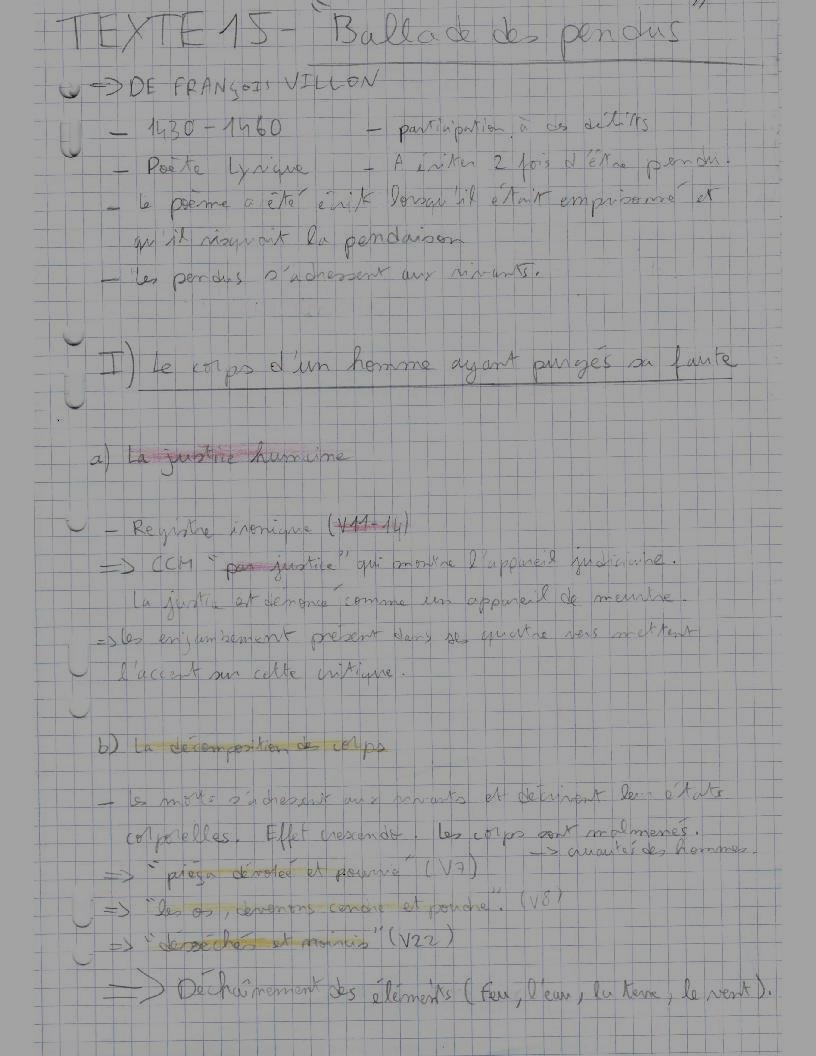 TEXTE 15 - "Ballade des pendus"
=> DE FRANÇOIS VILLON
- 1430 - 1460 - participation à ces délits
- Poète Lyrique - A éviter 2 fois d'être pendu.
- Le poème a été écrit lorsqu'il était emprisonné et
qu'il risquait la pendaison
- Les pendus s'adressent aux vivants.
I) Le corps d'un homme ayant purgés sa faute
a) La justice humaine
- Registre ironique (V11-14)
=> CCM "par justice" qui montre l'appareil judiciaire.
La justice est dénoncé comme un appareil de meurtre.
=> Les enjambement présent dans ses quatre vers mettent
l'accent sur cette critique.
b) La décomposition des corps
- Les morts s'adressent aux vivants et décrivent leur états
corporelles. Effet crescendo. Les corps sont malmenés.
-> cruautés des hommes.
=> "pièça dévorée et pourrie" (V7)
=> "les os, devenons cendre et poudre". (V8)
=> "desséchés et noircis" (V22)
=> Déchaînement des éléments (feu, l'eau, la terre, le vent).